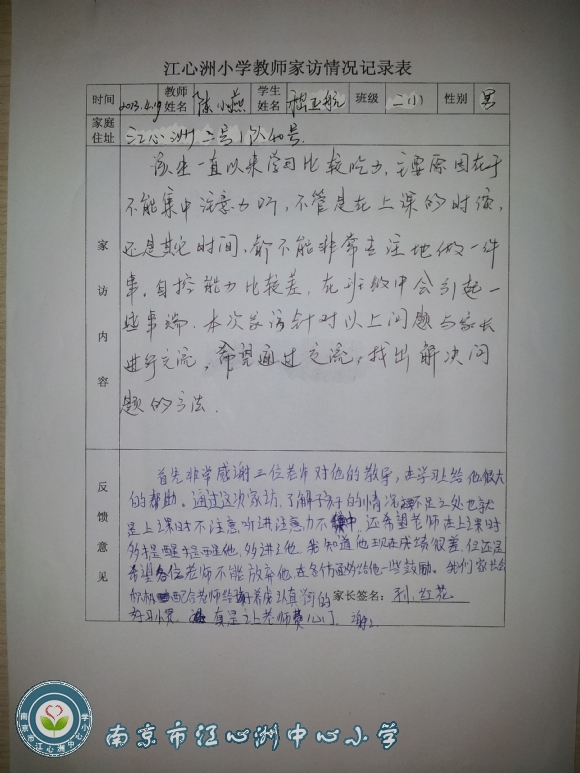 江心洲小学教师家访情况记录表
时间 2013.4.19 教师姓名 陈小燕 学生姓名 亚航 班级 二(1) 性别 男
家庭住址 江心洲二号1队40号
家访内容
该生一直以来学习比较吃力,主要原因在于
不能集中注意力听,不管是在上课的时候,
还是其它时间,都不能非常专注地做一件
事,自控能力比较差,在班级中会引起一
些事端.本次家访针对以上问题与家长
进行交流,希望通过交流,找出解决问
题的方法.
反馈意见
首先非常感谢三位老师对他的教导,在学习上给他很大
的帮助。通过这次家访,了解了孩子的情况,不足之处也就
是上课时不注意听讲注意力不集中,还希望老师在上课时
多提醒提醒他,多讲讲他.我知道他现在成绩很差,但还是
希望各位老师不能放弃他,在各方面多给他一些鼓励。我们家长会
配合老师给孩子养成认真的 家长签名: 红花
好习惯. 真是让老师费心了.谢谢
南京市江心洲中心小学
南京市江心洲中心小学